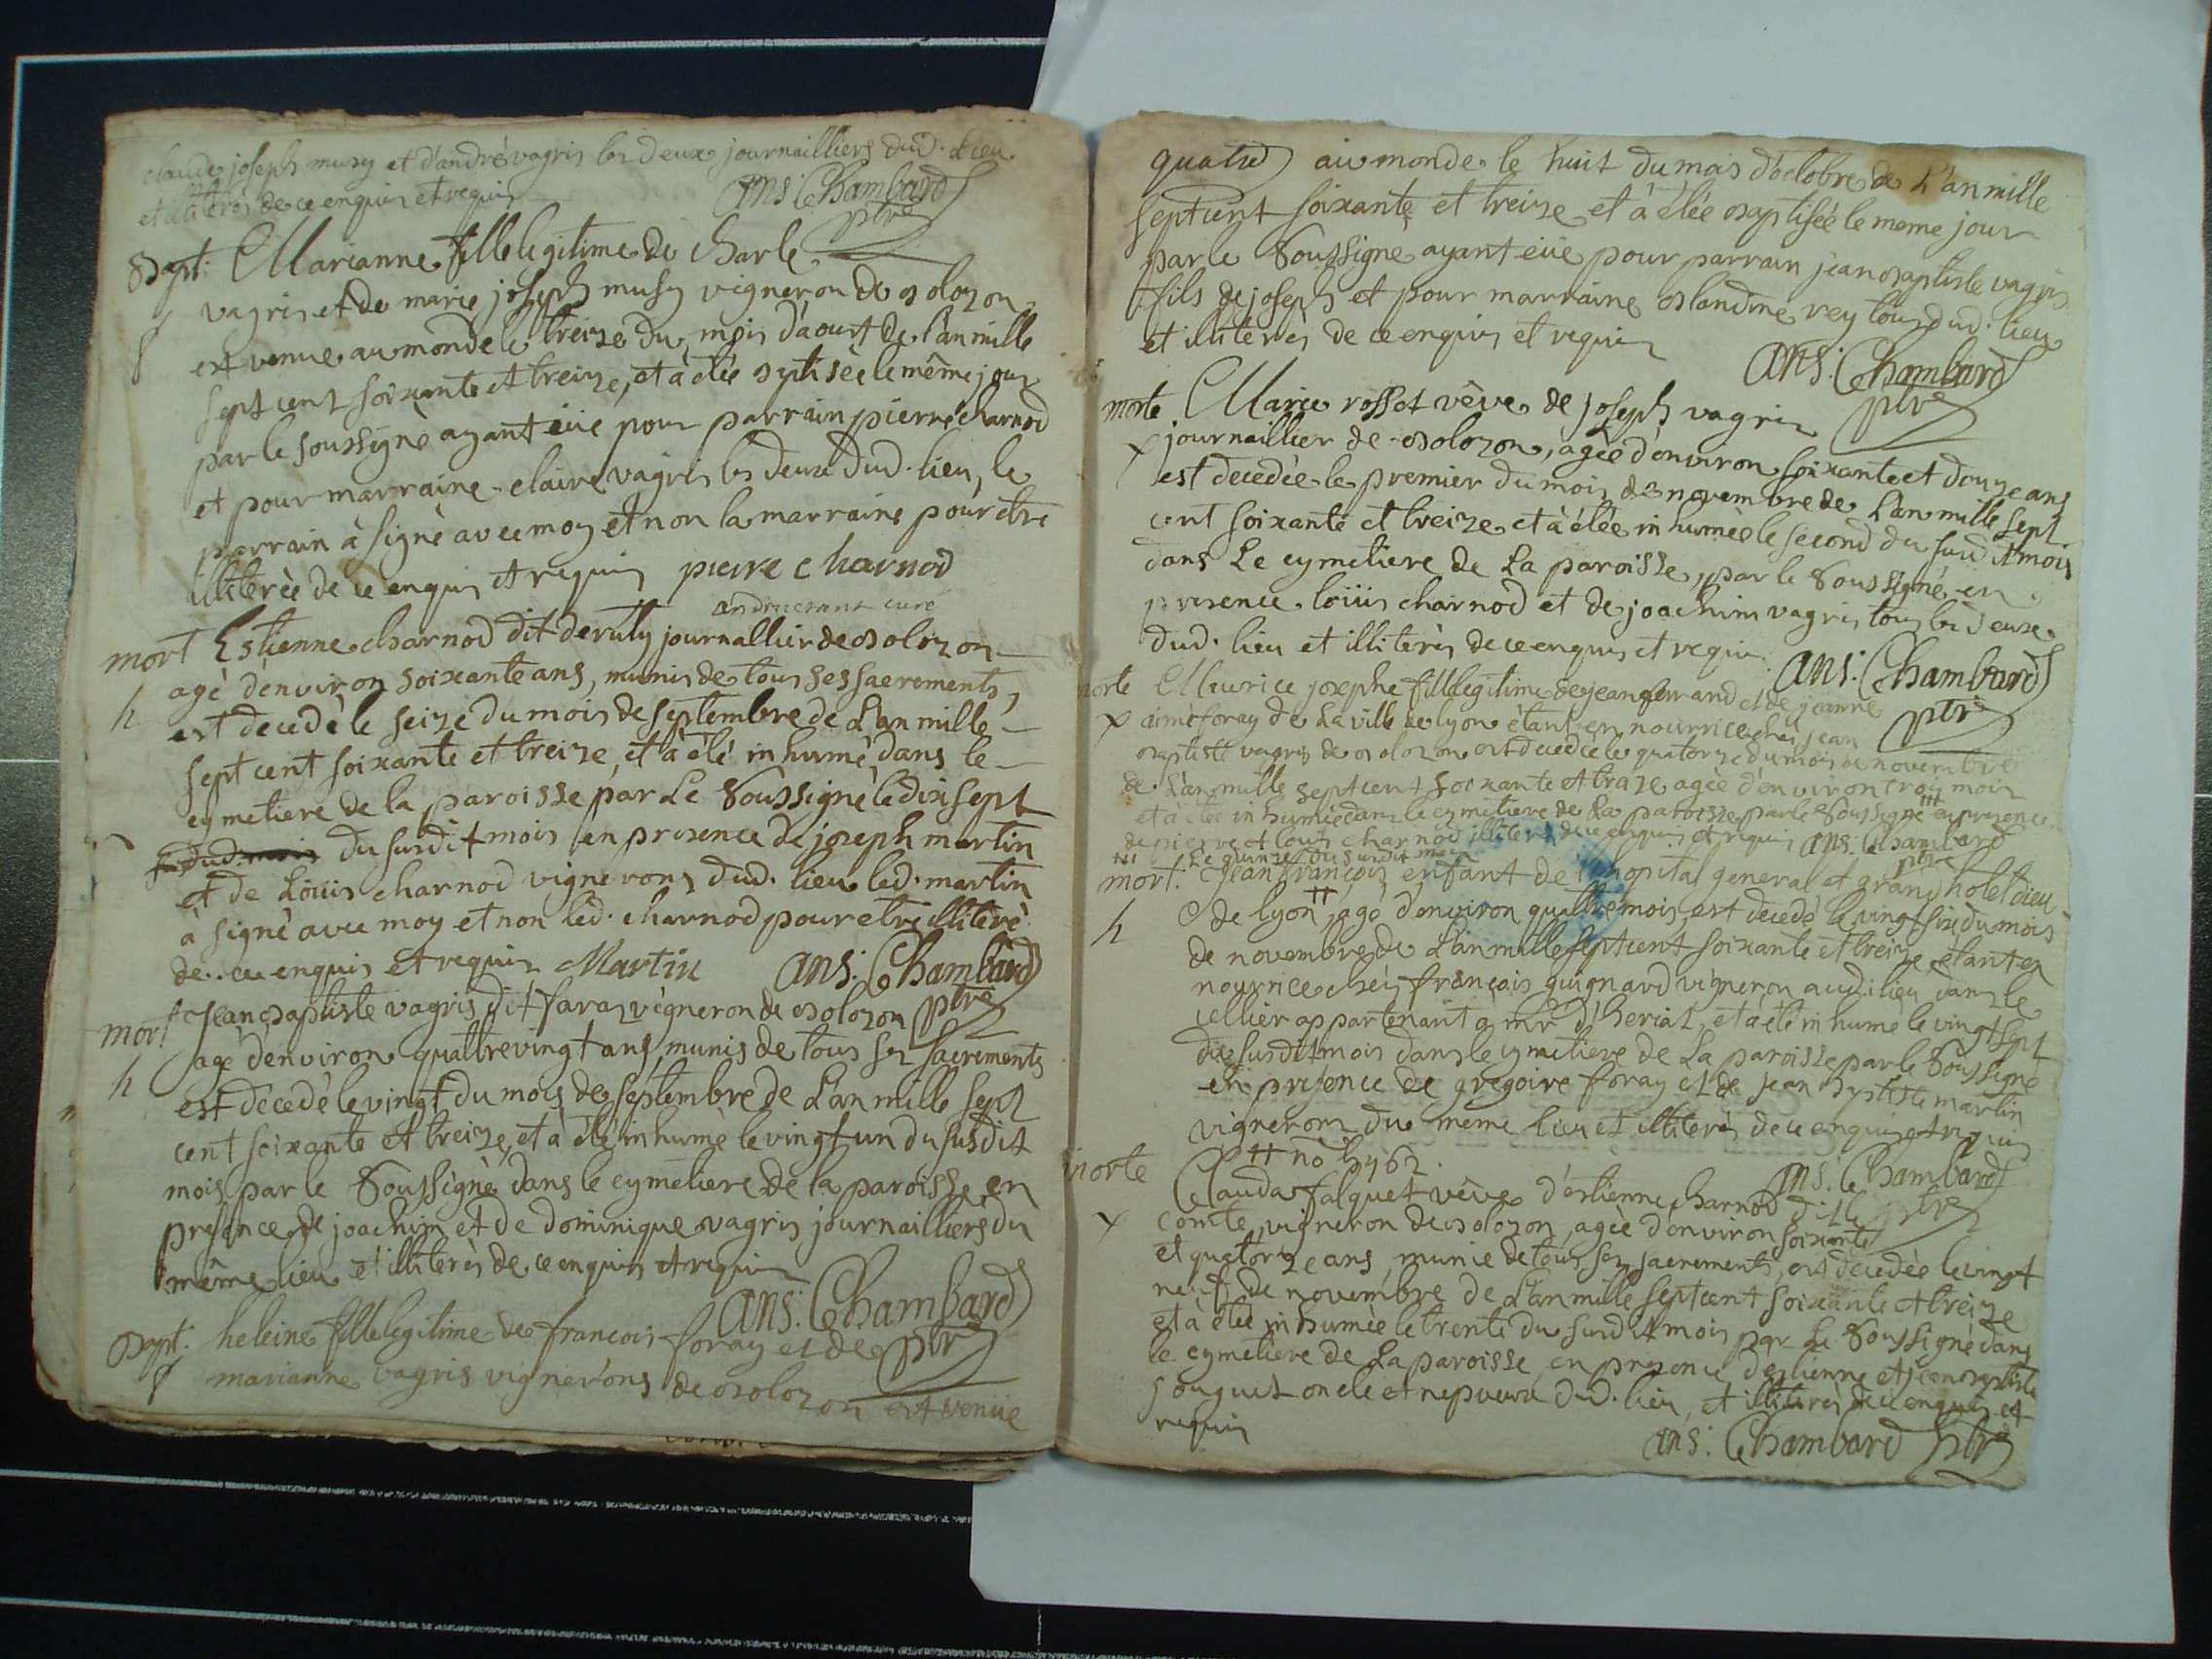 claude joseph musy et d'andré vagris les deux journailliers dud. Lieu
et illiterés de ce enquis et requis ans: Chambard
ptre
Bapt: Marianne fille legitime de charle
vagris et de marie joseph musy vigneron de bolozon
f est venue au monde le treize du mois d'aoust de l'an mille
sept cent soixante et treize, et à étée bptisèe le même jour
par le soussigné ayant eüe pour parrain pierre charnod
et pour marraine claire vagris les deux dud. lieu, le
parrain à signé avec moy et non la marraine pour être
illiterèe de ce enquis et requis pierre charnod
curé
mort Estienne charnod dit deruty journallier de bolozon
h agè d'environ soixante ans, munis de tous ses sacrements,
est decedè le seize du mois de septembre de L'an mille
sept cent soixante et treize, et à été inhumè dans le
cymetiere de la paroisse par Le Soussigné le dix sept
du susdit mois en presence de joseph martin
et de Löuis charnod vignerons dud. lieu led. martin
à signè avec moy et non lèd. charnod pour etre illiterè
de ce enquis et requis Martin ans: Chambard
ptre
mort Jean baptiste vagris dit faraz vigneron de bolozon
h agé d'environ quattrevingt ans, munis de tous ses sacrements
est decedè le vingt du mois de septembre de L'an mille sept
cent soixante et treize, et à été inhumè le vingt un du susdit
mois par le Soussignè dans le cymetiere de la paroisse en
presence de joachim et de dominique vagris journailliers du
même lieu et illiterès de ce enquis et requis
ans: Chambard
ptre
Bapt: heleine fille legitime de francois foray et de
f marianne vagris vignerons de bolozon est venüe
quatre au monde le huit du mois d'octobre de L'an mille
sept cent soixante et treize et à étée baptisée le meme jour
par le Soussigné ayant eüe pour parrain jean baptiste vagris
fils de joseph et pour marraine blandine rey tous dud. lieu
et illiterès de ce enquis et requis
ans: Chambard
ptre
morte Marie rossot vève de joseph vagris
x journaillier de bolozon, agée d'environ soixante et douze ans
est decedée le premier du mois de novembre de L'an mille sept
cent soixante et treize et à étée inhumèe le second du susdit mois
dans Le cymetiere de La paroisse, par le Soussigné en
presence löuis charnod et de joachim vagris tous les deux
dud. lieu et illiterès de ce enquis et requis ans: Chambard
ptre
morte Maurice josephe fille legitime de jean ferrand et de jeanne
x aimé foray de La ville de lyon étant en nourrice chez jean
baptiste vagris de bolozon est decedée le quatorze du mois de novembre
de L'an mille sept cent soixante et treize agée d'environ trois mois
et à étée inhumée dans le cymetiere de La paroisse par le Soussigné ttt en presence
de pierre et louis charnod illiterès de ce enquis et requis ans: Chambard
ptre
ttt Le quinze du susdit mois
mort: Jean françois enfant de l'hopital general et grand hotel dieu
h de lyon tt, agé d'environ quattre mois, est decedé le vingt six du mois
de novembre de L'an mille sept cent soixante et treize, étant en
nourrice chéz françois guignard vigneron aud. lieu dans le
cellier appartenant a mr. d'heriat, et à été inhumè le vingt sept
du susdit mois dans le cymetiere de La paroisse par le Soussigné
en presence de gregoire foray et de jean bptiste martin
vignerons du meme lieu et illiterès de ce enquis et requis
tt no
ans: Chambard
ptre
morte Clauda falquet vève d'estienne charnod dit le
x comte, vigneron de bolozon, agèe d'environ soixante
et quatorze ans, munie de tous ses sacrements, est decedèe le vingt
neuf de novembre de L'an mille sept cent soixante et treize
et à étée inhumèe le trente du susdit mois par Le Soussigné dans
le cymetiere de La paroisse en presence d'estienne et jean baptiste
jouguet oncle et nepveux dud. lieu, et illiterès de ce enquis et
requis
ans: Chambard ptre